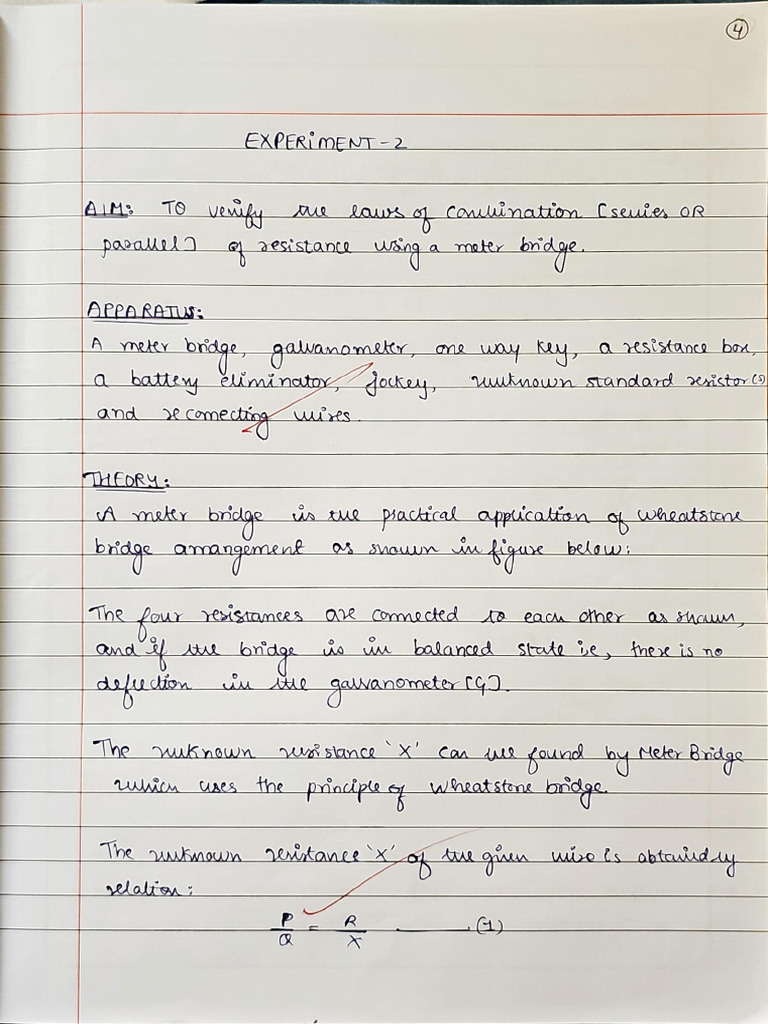 4
EXPERIMENT-2
AIM: TO verify the laws of combination [series OR
parallel] of resistance using a meter bridge.
APPARATUS:
A meter bridge, galvanometer, one way key, a resistance box,
a battery eliminator, jockey, unknown standard resistor(s)
and connecting wires.
THEORY:
A meter bridge is the practical application of wheatstone
bridge arrangement as shown in figure below:
The four resistances are connected to each other as shown,
and if the bridge is in balanced state i.e, there is no
deflection in the galvanometer [G].
The unknown resistance 'X' can be found by Meter Bridge
which uses the principle of wheatstone bridge.
The unknown resistance 'X' of the given wire is obtained by
relation:
P/Q = R/X ——— (1)